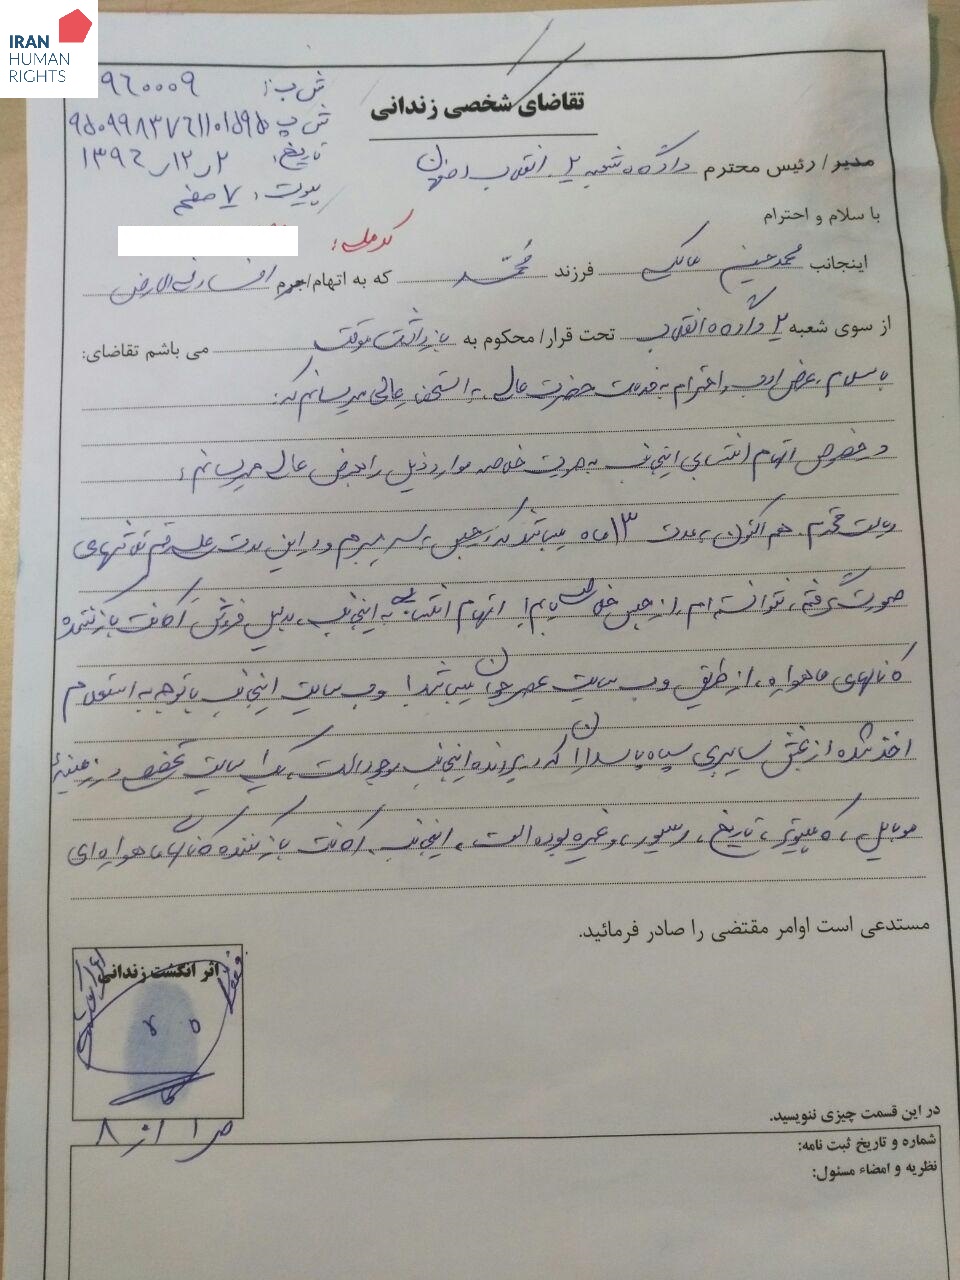 IRAN
HUMAN
RIGHTS
ش ب: ۹۶۰۰۰۹
ش پ ۹۵۰۹۹۸۳۷۶۱۱۰۱۵۹۵
تاریخ: ۱۳۹۶/۱۲/۲
پیوست: ۷ صفحه
تقاضای شخصی زندانی
مدیر/ رئیس محترم دادگاه شعبه ۲ انقلاب اصفهان
با سلام و احترام
کد ملی:
اینجانب محمدحسین مالکی فرزند محمد که به اتهام/جرم افساد فی الارض
از سوی شعبه ۲ دادگاه انقلاب تحت قرار/ محکوم به بازداشت موقت می باشم تقاضای:
با سلام، عرض ادب و احترام به خدمت حضرت عالی، به استحضار عالی میرسانم که:
در خصوص اتهام انتسابی اینجانب به صورت خلاصه موارد ذیل را بعرض عالی میرسانم:
ریاست محترم، هم اکنون به مدت ۱۳ ماه میباشد که در حبس به سر میبرم و در این مدت علی رغم تلاشهای
صورت گرفته، نتوانسته ام از حبس خلاصی یابم! اتهام انتسابی به اینجانب، بدلیل فروش اکانت بازکننده
کانالهای ماهواره، از طریق وب سایت عصر جوان میباشد! وب سایت اینجانب با توجه به استعلام
اخذ شده از بخش سایبری سپاه پاسداران که در پرونده اینجانب موجود است، یک سایت تخصصی در زمینهٔ
موبایل، کامپیوتر، تاریخ، رسیور، و غیره بوده است، اینجانب، اکانت بازکننده کانالهای ماهواره ای
مستدعی است اوامر مقتضی را صادر فرمائید.
اثر انگشت زندانی
ص ۱ از ۸
در این قسمت چیزی ننویسید.
شماره و تاریخ ثبت نامه:
نظریه و امضاء مسئول: